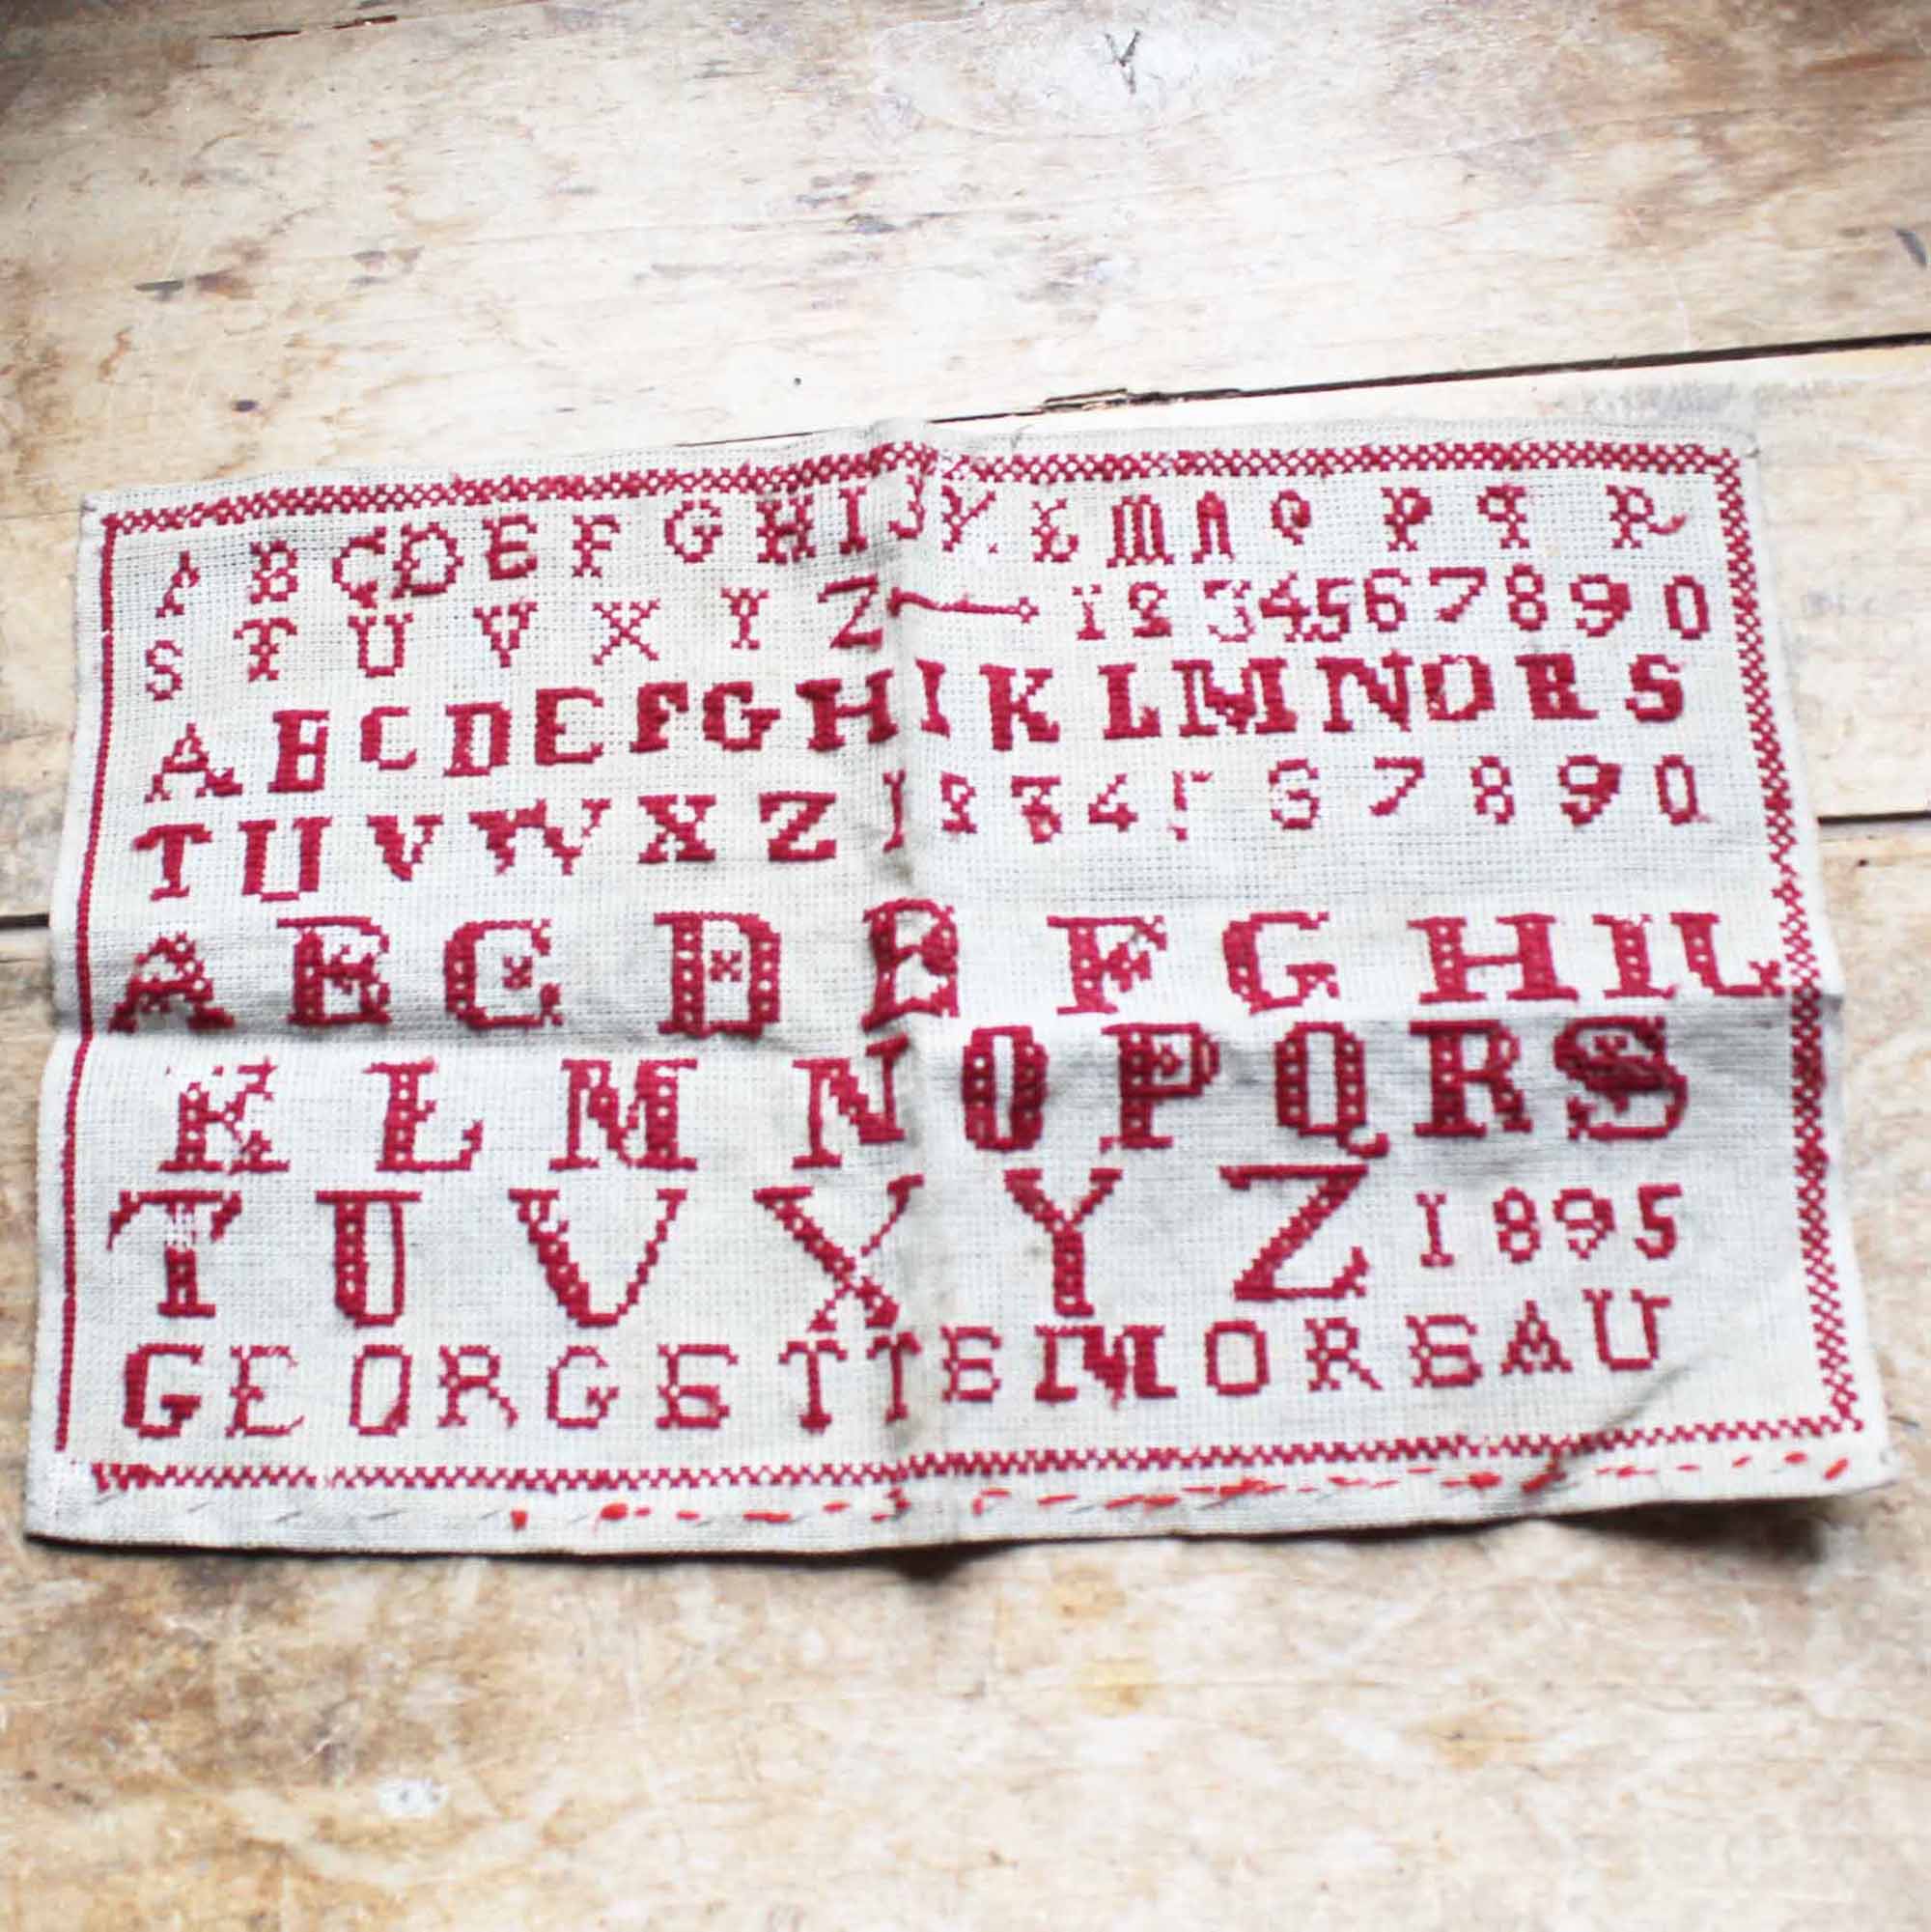 A B C D E F G H I J Y. L M N O P Q R
S T U V X Y Z 1 2 3 4 5 6 7 8 9 0
A B C D E F G H I K L M N O R S
T U V W X Z 1 2 3 4 5 6 7 8 9 0
A B C D E F G H I L
K L M N O P Q R S
T U V X Y Z 1895
GEORGETTE MOREAU